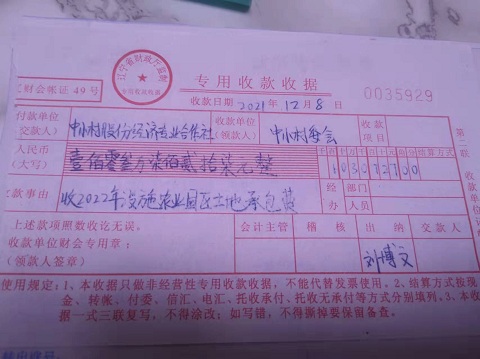 辽宁省财政厅监制
专用收款收据
财会账证 49号
收款日期 2021年 12月 8日
0035929
付款单位(交款人)
中小村股份经济专业合作社
收款单位(领款人)
中小村委会
收款项目
人民币(大写)
壹佰零叁万柒佰贰拾柒元整
结算方式
交款事由
收2022年设施农业园区土地承包费
经办
部门
人员
上述款项照数收讫无误。
收款单位财会专用章:
(领款人签章)
会计主管
稽核
出纳
交款人
刘博文
第二联
使用规定:1、本收据只做非经营性专用收款收据,不能代替发票使用。2、结算方式按现
金、转帐、付委、信汇、电汇、托收承付、托收无承付等方式分别填列。3、本收
据一式三联复写,不得涂改;如写错,不得撕掉要保留备查。